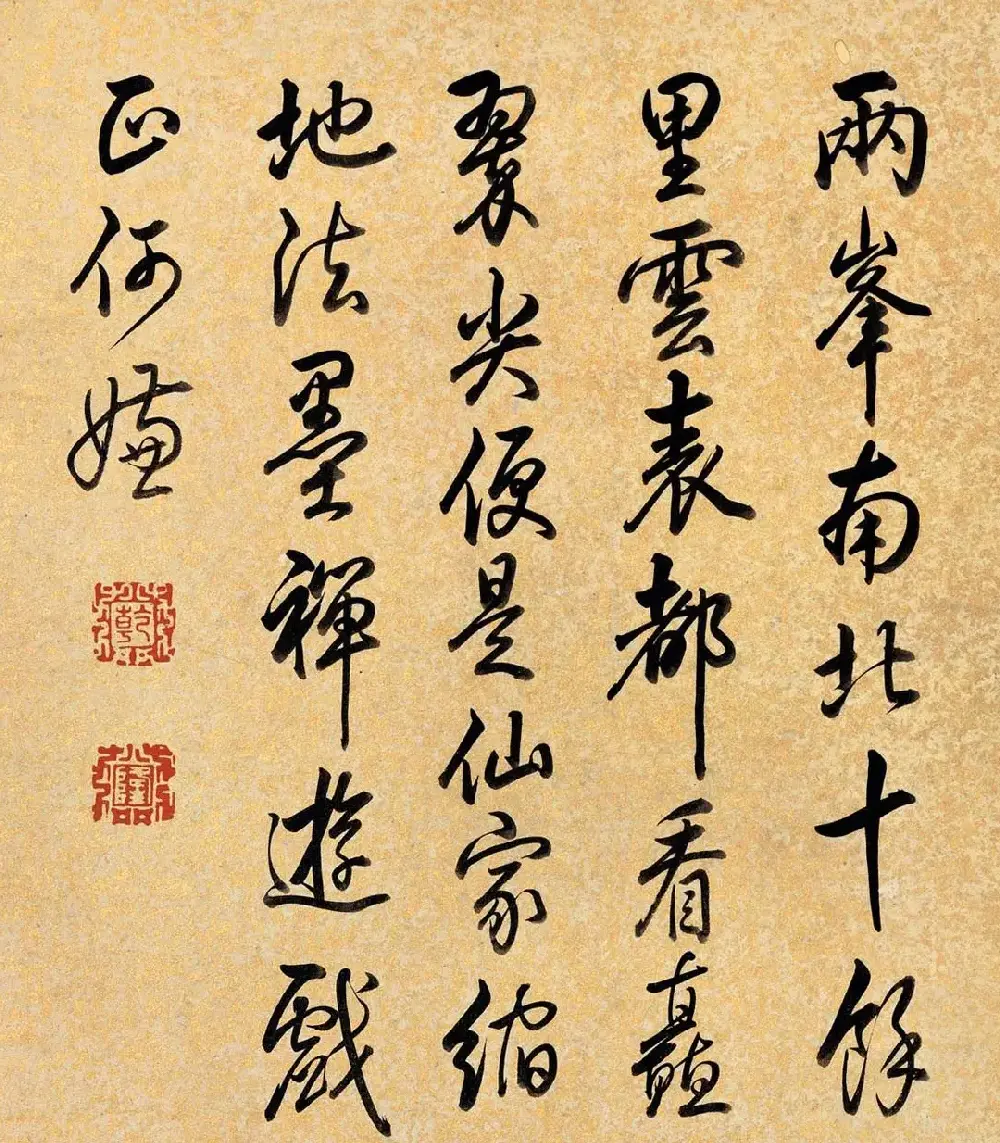 兩峯南北十餘
里雲表都看矗
翠尖便是仙家縮
地法墨禪遊戲
正何嫌
乾
隆